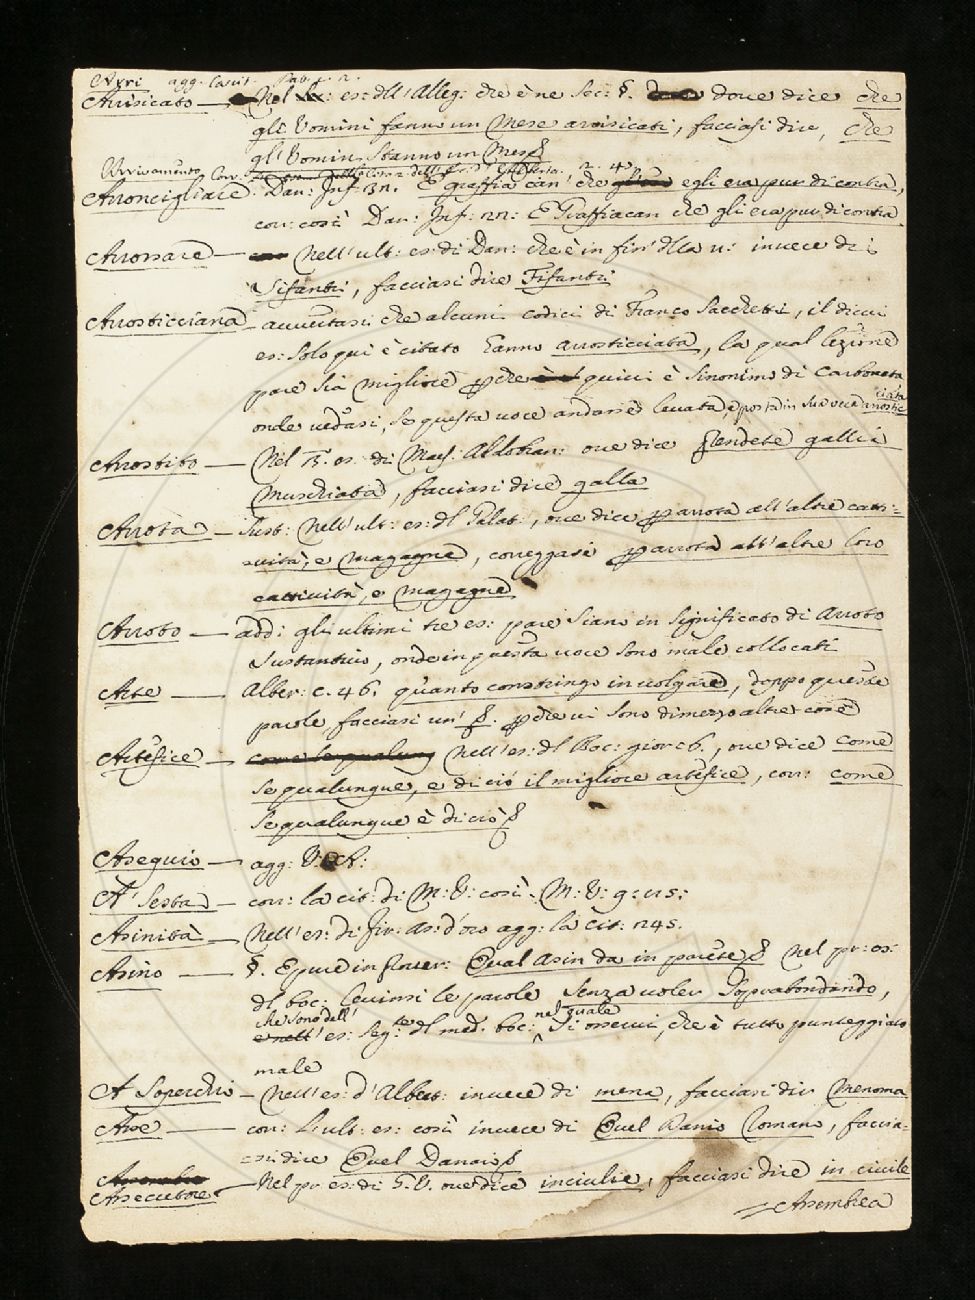 Arri agg. la cit.
Arrisicato — Nel es: dll'Alleg: che è ne Sec: §. doue dice che
gli Uomini fanno un Mese arrisicati, facciasi dire, che
gl'Uomin Stanno un Mese
Arrivamento Corr.
Arroncigliare Dan: Inf: E graffia can' che egli era pur di contra,
corr: così Dan: Inf: 22: E Graffiacan che gli era pur di contra
Arrossare — Nell'ult: es: di Dan: che è in fin dlla u: invece di
Sifanti, facciasi dire Fifanti
Arrosticciana auuertasi che alcuni codici di Franco Sacchetti, il di cui
es: Solo qui è citato hanno arrosticciata, la qual lezione
pare sia migliore perche quivi è Sinonimo di carbonata
onde uedasi, se questa uoce andasse leuata, e posta in sua uece arrostic
ciata
Arrostito — Nel es: di Maes: Aldobran: oue dice prendete gallia
Muschiata, facciasi dire galla
Arrota — Sust: nell'ult: es: dl Palat:, oue dice per arrota all'altre catti=
vità, e magagne, correggasi per arrota all'altre loro
cattività, e magagne
Arroto — add: gli ultimi tre es: pare siano in significato di arroto
Sustantivo, onde in questa uoce sono male collocati
Arte — Alber: c. 46. quanto constringo in uolgare, doppo queste
parole facciasi un' §. perche ui sono dimezzo altre cose
Artefice — come se qualung nell'es: dl Boc: gior: 6., oue dice come
se qualungue, e di ciò il migliore artefice, corr: come
se qualungue è di ciò
Aseguio — agg: V: A:
A' Sesta — corr: la cit: di M: V: così M: V: 9: 115:
Asinità — nell'es: di Fir: As: d'oro agg: la cit: 245.
Asino — §. E pure in flouer: Qual asin da in parete Nel pr: es:
dl boc: leuinsi le parole senza uoler soprabondando,
che sono dell' nel quale
e nell' es: seg:te dl med: boc: si osserui, che è tutto punteggiato
male
A Soperchio — Nell'es: d'Albert: invece di mena, facciasi dir Menoma
Asse — corr: l'ult: es: così invece di Quel Danio Romano, faccia-
si dire Quel Danaio
Assecutore — Nel pr: es: di G. V. oue dice inciulie, facciasi dire in ciuile
Assemblea